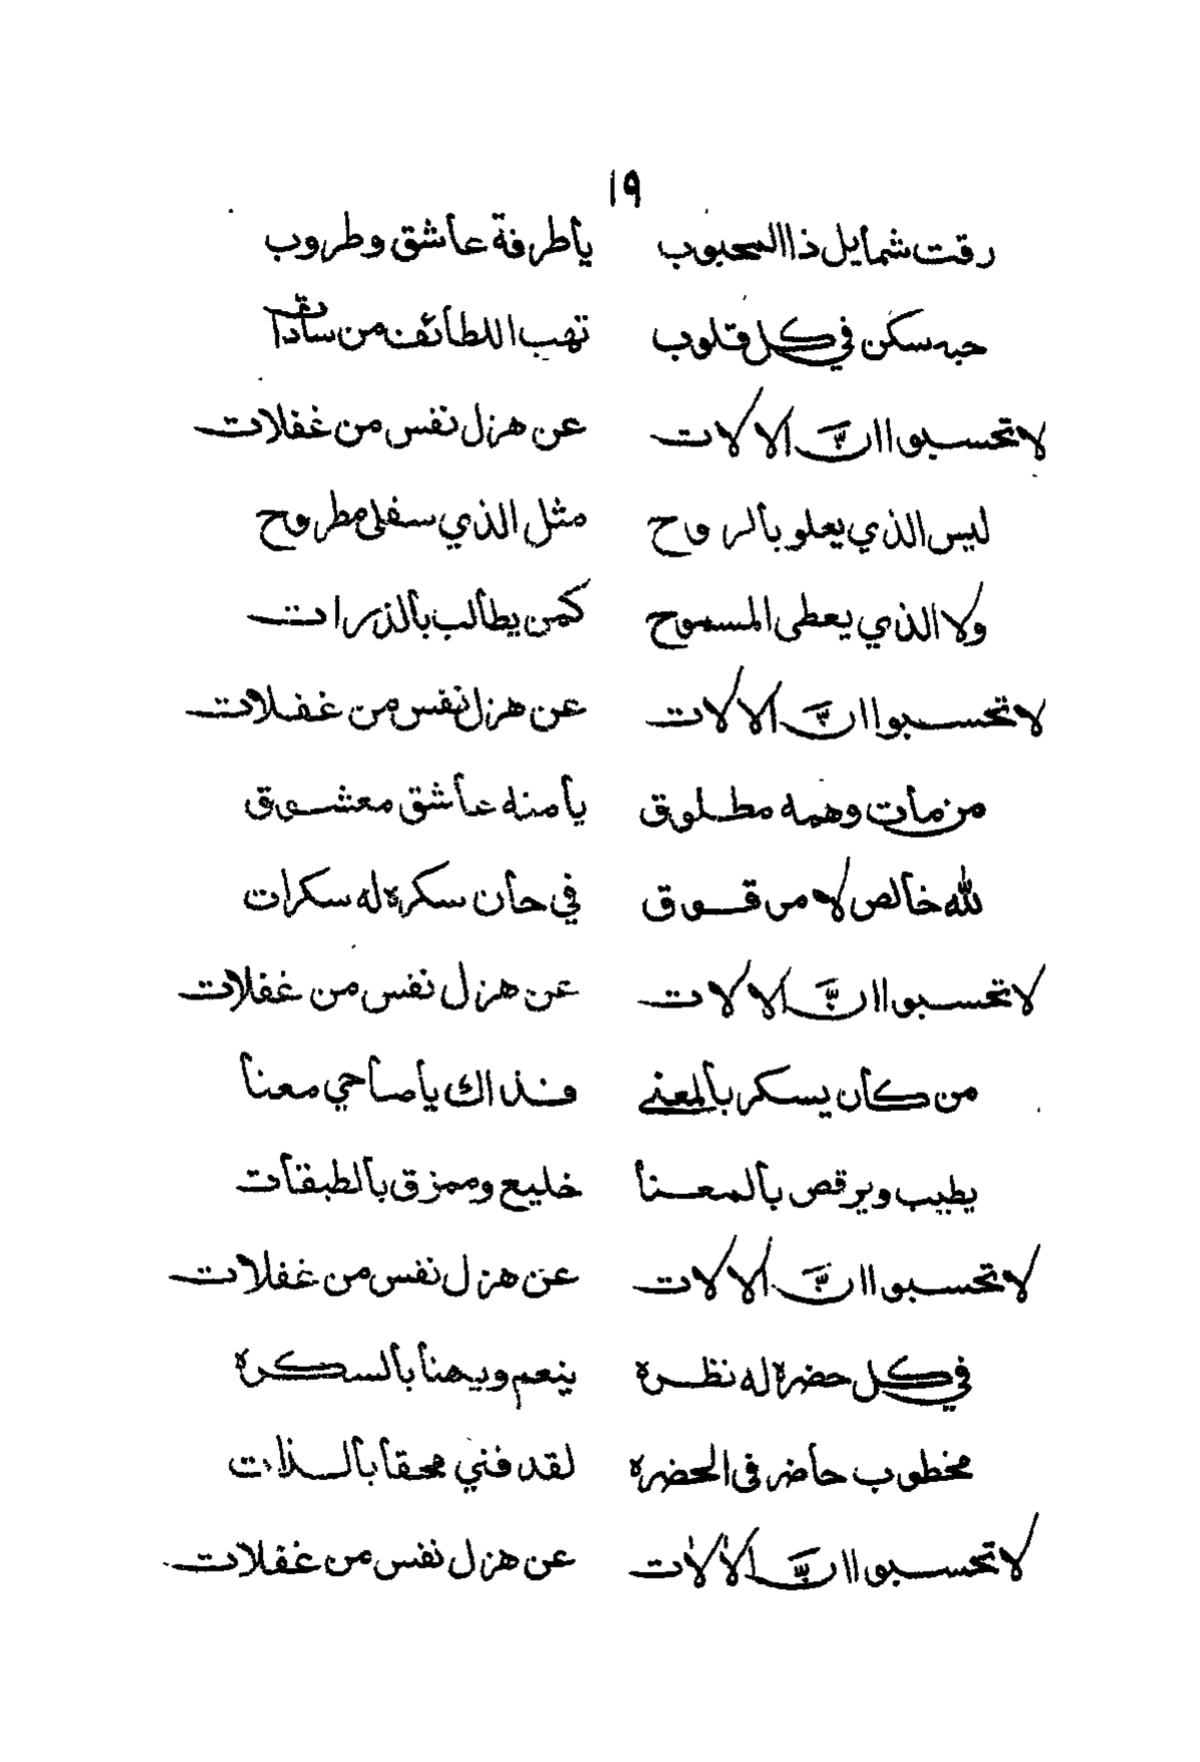 ١٩
رقت شمايل ذا المحبوب ياطرفة عاشق وطروب
حبه سكن في كل قلوب تهب اللطائف من سادات
لا تحسبوا ان الالات عن هزل نفس من غفلات
ليس الذي يعلو بالروح مثل الذي سفلى مطروح
ولا الذي يعطى المسموح كمن يطالب بالذرات
لا تحسبوا ان الالات عن هزل نفس من غفلات
من مات وهمه مطلوق يامنه عاشق معشوق
لله خالص لا مرقوق في حان سكره له سكرات
لا تحسبوا ان الالات عن هزل نفس من غفلات
من كان يسكر بالمعنى فذاك ياصاحي معنا
يطيب ويرقص بالمعنا خليع وممزق بالطبقات
لا تحسبوا ان الالات عن هزل نفس من غفلات
في كل حضرة له نظره ينعم ويهنأ بالسكره
مخطوب حاضر فى الحضره لقد فني محقا بالذات
لا تحسبوا ان الالات عن هزل نفس من غفلات